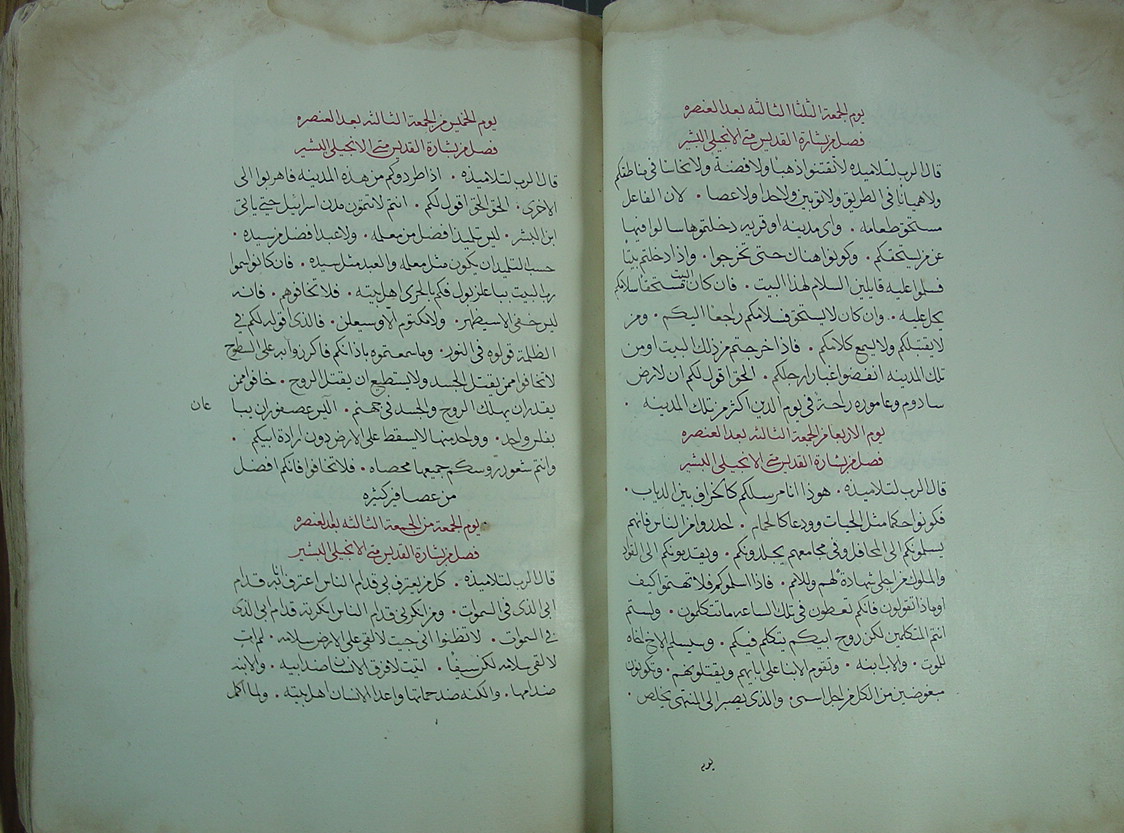 يوم الجمعة الثلثا الثالثه بعد العنصره
فصل من بشارة القديس متى الانجيلى البشير
قال الرب لتلاميذه لا تقتنوا ذهبا ولا فضة ولا نحاسا فى مناطقكم
ولا هميانا فى الطريق ولا ثوبين ولا حذا ولا عصا · لان الفاعل
مستحق طعامه · واى مدينه او قريه دخلتموها سالوا فيها
عن من يستحقكم · وكونوا هناك حتى تخرجوا · واذا دخلتم بيتًا
فسلموا عليه قايلين السلام لهذا البيت · فان كان البيت مستحقا سلامكم
يحل عليه · وان كان لا يستحق فسلامكم راجعًا اليكم · ومن
لا يقبلكم ولا يسمع كلامكم · فاذا خرجتم من ذلك البيت او من
تلك المدينه انفضوا غبار ارجلكم · الحق اقول لكم ان لارض
سادوم وعاموره راحة فى يوم الدين اكثر من تلك المدينه ·
يوم الاربعا من الجمعة الثالثه بعد العنصره
فصل من بشارة القديس متى الانجيلى البشير
قال الرب لتلاميذه · هوذا انا مرسلكم كالخراف بين الدياب ·
فكونوا حكما مثل الحيات وودعا كالحمام · احدروا من الناس فانهم
يسلمونكم الى المحافل وفى مجامعهم يجلدونكم · ويقدمونكم الى القواد
والملوك من اجلى شهادة لهم وللامم · فاذا اسلموكم فلا تهتموا كيف
او ماذا تقولون فانكم تعطون فى تلك الساعه ما تتكلمون · ولستم
انتم المتكلمين لكن روح ابيكم يتكلم فيكم · وسيسلم الاخ اخاه
للموت · والاب ابنه · وتقوم الابنا على ابايهم ويقتلوهم · وتكونون
مبغوضين من الكل من اجل اسمى · والذى يصبر الى المنتهى يخلص ·
يوم
يوم الخميس من الجمعة الثالثه بعد العنصره
فصل من بشارة القديس متى الانجيلى البشير
قال الرب لتلاميذه · اذا طردوكم من هذه المدينه فاهربوا الى
الاخرى · الحق الحق اقول لكم · انتم لا تتمون مدن اسرائيل حتى ياتى
ابن البشر · ليس تلميذ افضل من معلمه · ولا عبد افضل من سيده ·
حسب التلميذ ان يكون مثل معلمه والعبد مثل سيده · فان كانوا سموا
رب البيت بباعلزبول فكم بالحرى اهل بيته · فلا تخافوهم · فانه
ليس خفى الا سيظهر · ولا مكتوم الا وسيعلن · فالذى اقوله لكم فى
الظلمة قولوه فى النور · وما سمعتموه باذانكم فاكرزوا به على السطوح
لا تخافوا ممن يقتل الجسد ولا يستطيع ان يقتل الروح · خافوا ممن
يقدر ان يهلك الروح والجسد فى جهنم · اليس عصفوران يباعان
بفلس واحد · وواحد منهما لا يسقط على الارض دون ارادة ابيكم ·
وانتم شعور رؤوسكم جميعها محصاه · فلا تخافوا فانكم افضل
من عصافير كثيره
يوم الجمعة من الجمعة الثالثه بعد العنصره
فصل من بشارة القديس متى الانجيلى البشير
قال الرب لتلاميذه · كل من يعترف بى قدام الناس اعترف انا به قدام
ابى الذى فى السموات · ومن انكرنى قدام الناس انكرته قدام ابى الذى
فى السموات · لا تظنوا انى جيت لالقى على الارض سلامه · لم ات
لالقى سلامه لكن سيفًا · اتيت لافرق الانسان ضد ابيه · والابنه
ضد امها · والكنه ضد حماتها واعدا الانسان اهل بيته · ولما اكمل